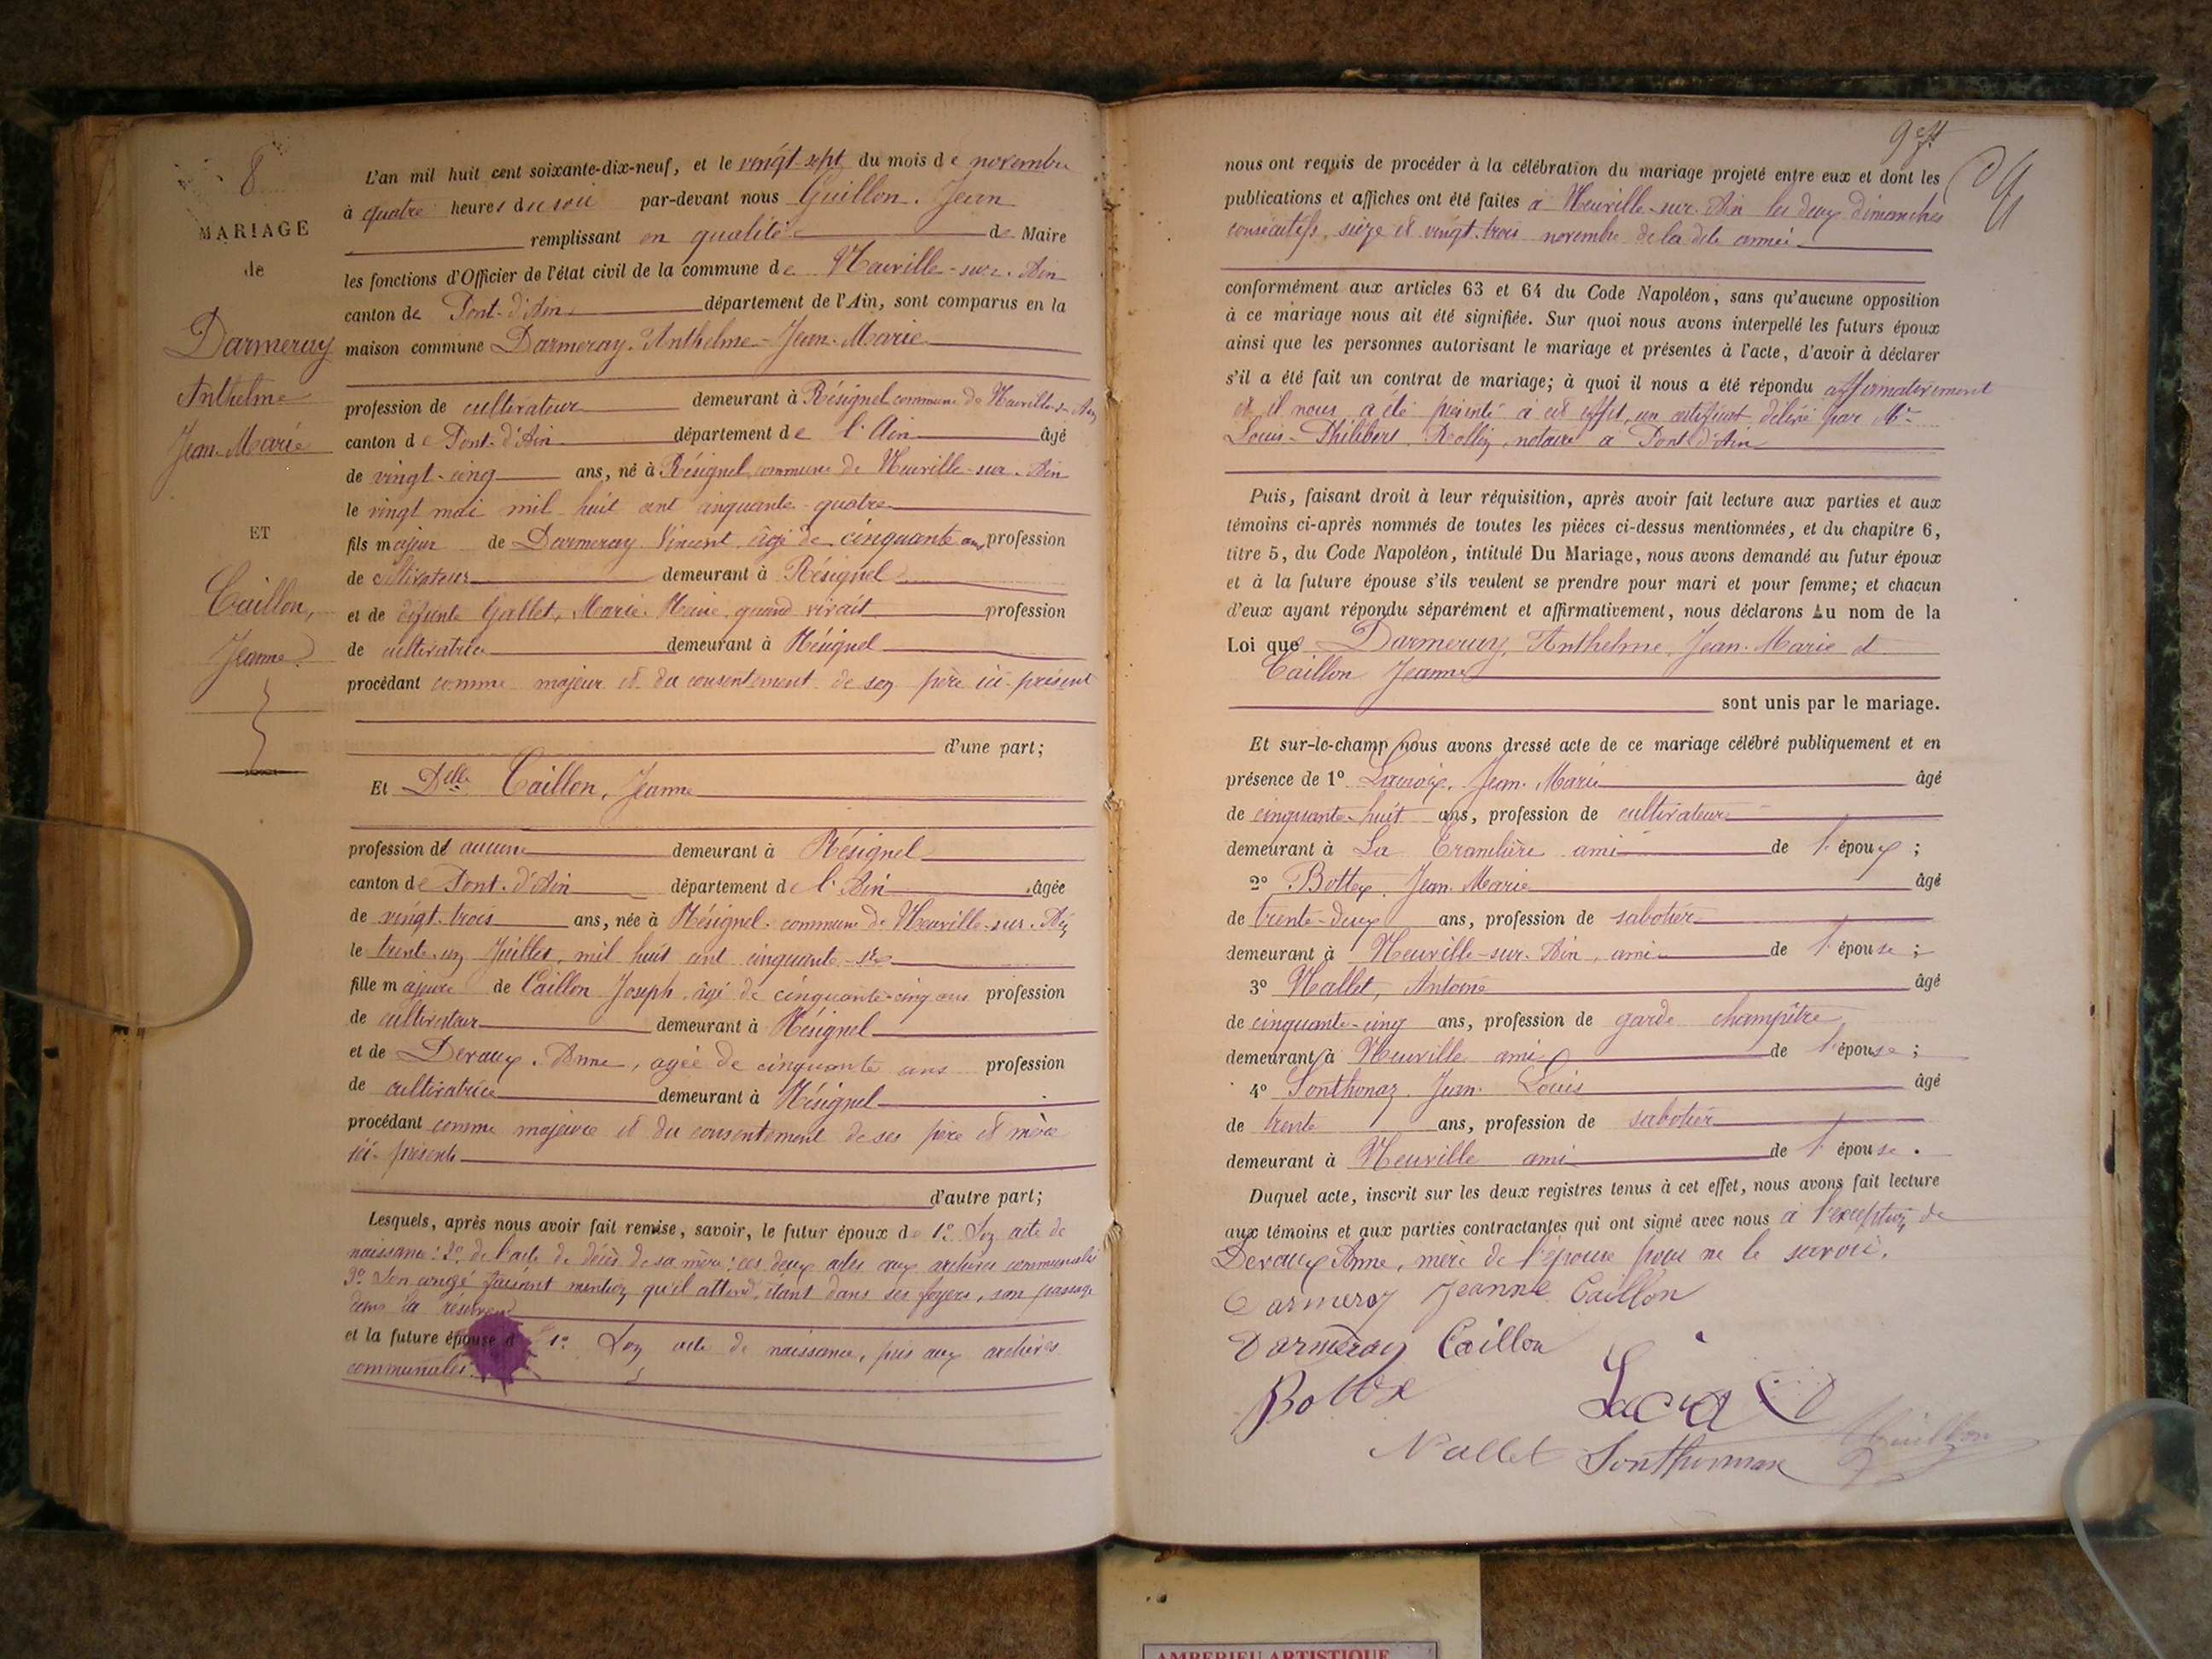 8
MARIAGE
de
Darmeray
Anthelme
Jean-Marie
ET
Caillon,
Jeanne
L'an mil huit cent soixante-dix-neuf, et le vingt-sept du mois de novembre
à quatre heures du soir par-devant nous Guillon, Jean
remplissant en qualité de Maire
les fonctions d'Officier de l'état civil de la commune de Neuville-sur-Ain
canton de Pont-d'Ain département de l'Ain, sont comparus en la
maison commune Darmeray, Anthelme-Jean-Marie
profession de cultivateur demeurant à Résignel commune de Neuville-s-Ain
canton de Pont-d'Ain département de l'Ain âgé
de vingt-cinq ans, né à Résignel, commune de Neuville-sur-Ain
le vingt mai mil huit cent cinquante-quatre
fils majeur de Darmeray Vincent, âgé de cinquante ans profession
de cultivateur demeurant à Résignel
et de défunte Gallet, Marie-Reine, quand vivait profession
de cultivatrice demeurant à Résignel
procédant comme majeur et du consentement de son père ici-présent
d'une part;
Et Delle Caillon, Jeanne
profession de aucune demeurant à Résignel
canton de Pont-d'Ain département de l'Ain âgée
de vingt-trois ans, née à Résignel, commune de Neuville-sur-Ain
le trente-un Juillet, mil huit cent cinquante-six
fille majeure de Caillon Joseph, âgé de cinquante-cinq ans profession
de cultivateur demeurant à Résignel
et de Devaux, Anne, agée de cinquante ans profession
de cultivatrice demeurant à Résignel
procédant comme majeure et du consentement de ses père et mère
ici-présents
d'autre part;
Lesquels, après nous avoir fait remise, savoir, le futur époux de 1° Son acte de
naissance: 2° de l'acte de décès de sa mère: ces deux actes aux archives communales
3° Son congé faisant mention qu'il attend, étant dans ses foyers, son passage
dans la réserve
et la future épouse d 1° Son acte de naissance, pris aux archives
communales.
nous ont requis de procéder à la célébration du mariage projeté entre eux et dont les
publications et affiches ont été faites à Neuville-sur-Ain les deux dimanches
consécutifs, seize et vingt-trois novembre de la dite année
conformément aux articles 63 et 64 du Code Napoléon, sans qu'aucune opposition
à ce mariage nous ait été signifiée. Sur quoi nous avons interpellé les futurs époux
ainsi que les personnes autorisant le mariage et présentes à l'acte, d'avoir à déclarer
s'il a été fait un contrat de mariage; à quoi il nous a été répondu affirmativement
et il nous a été présenté à cet effet, un certificat délivré par Me
Louis-Philibert Rollin, notaire à Pont-d'Ain
Puis, faisant droit à leur réquisition, après avoir fait lecture aux parties et aux
témoins ci-après nommés de toutes les pièces ci-dessus mentionnées, et du chapitre 6,
titre 5, du Code Napoléon, intitulé Du Mariage, nous avons demandé au futur époux
et à la future épouse s'ils veulent se prendre pour mari et pour femme; et chacun
d'eux ayant répondu séparément et affirmativement, nous déclarons Au nom de la
Loi que Darmeray, Anthelme, Jean-Marie et
Caillon Jeanne
sont unis par le mariage.
Et sur-le-champ nous avons dressé acte de ce mariage célébré publiquement et en
présence de 1° Lacroix, Jean-Marie âgé
de cinquante-huit ans, profession de cultivateur
demeurant à La Tramblière ami de l'époux ;
2° Bottex, Jean-Marie âgé
de trente-deux ans, profession de sabotier
demeurant à Neuville-sur-Ain, ami de l'épouse ;
3° Nallet, Antoine âgé
de cinquante-cinq ans, profession de garde champêtre
demeurant à Neuville ami de l'épouse ;
4° Sonthonax, Jean-Louis âgé
de trente ans, profession de sabotier
demeurant à Neuville ami de l'épouse.
Duquel acte, inscrit sur les deux registres tenus à cet effet, nous avons fait lecture
aux témoins et aux parties contractantes qui ont signé avec nous à l'exception de
Devaux Anne, mère de l'épouse pour ne le savoir.
Darmeray Jeanne Caillon
Darmeray Caillon
Bottex Lacroix
Nallet Sonthonnax Guillon
AMBERIEU ARTISTIQUE